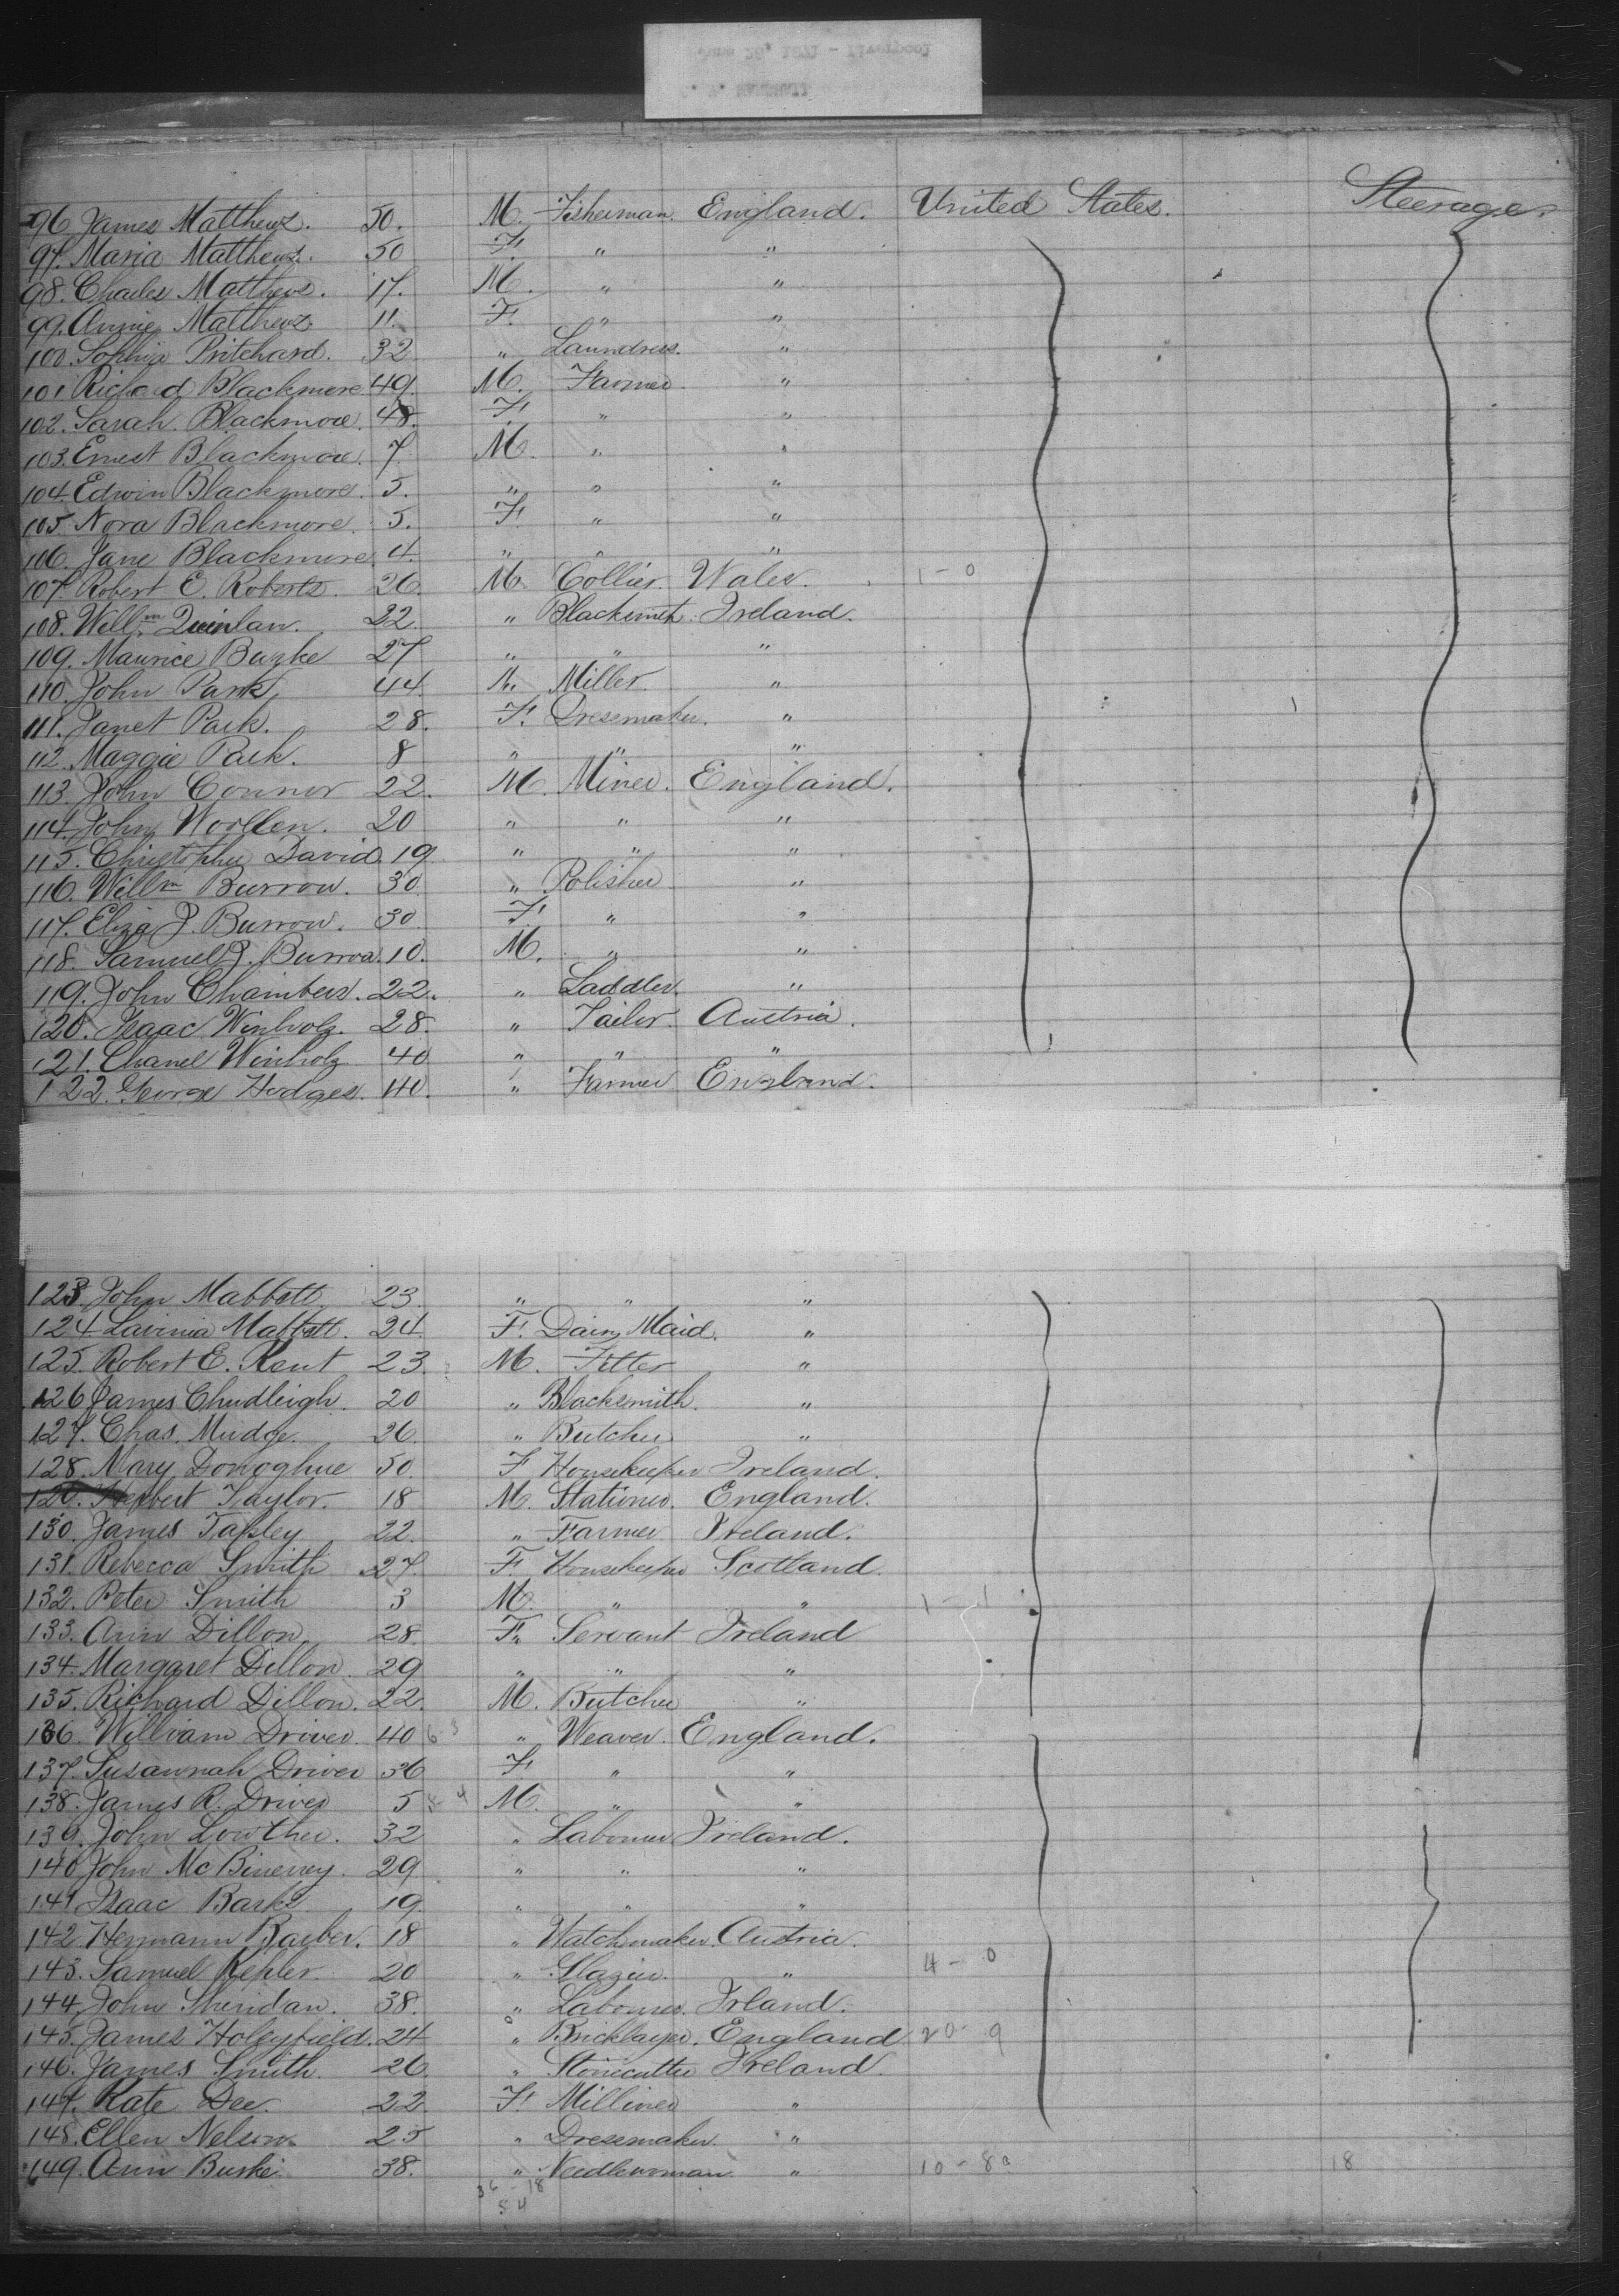 96. James Matthews. 50. M. Fisherman England. United States. Steerage.
97. Maria Matthews. 50 F. " "
98. Charles Matthews. 17. M. " "
99. Annie Matthews 11. F. " "
100. Sophia Pritchard. 32 " Laundress. "
101 Richard Blackmore 49. M. Farmer "
102. Sarah Blackmore. 48. F. " "
103. Ernest Blackmore. 7. M. " "
104. Edwin Blackmore. 5. " " "
105. Nora Blackmore. 5. F. " "
106. Jane Blackmore 4. " " "
107. Robert E. Roberts. 26. M. Collier. Wales. 1-0
108. Willm Quinlan. 22. " Blacksmith. Ireland.
109. Maurice Burke 27 " " "
110. John Park, 44 M. Miller "
111. Janet Park. 28. F. Dressmaker. "
112. Maggie Park. 8 " " "
113. John Connor 22. M. Miner. England.
114. John Woollen. 20 " " "
115. Christopher David. 19 " " "
116. Willm Burrow. 30. " Polisher "
117. Eliza J. Burrow. 30 F. " "
118. Samuel J. Burrow. 10. M. " "
119. John Chambers. 22. " Saddler. "
120. Isaac Winholz. 28. " Tailor. Austria.
121. Chanel Winholz 40 " " "
122. George Hodges. 40. " Farmer England.
123. John Mabbott. 23. " " "
124. Lavinia Mabbott. 24. F. Dairy Maid. "
125. Robert E. Kent 23. M. Fitter "
126 James Chudleigh. 20 " Blacksmith. "
127. Chas. Mudge. 26. " Butcher "
128. Mary Donoghue 50. F Housekeeper Ireland.
Herbert Taylor. 18 M. Stationer. England.
130. James Tapley 22. " Farmer Ireland.
131. Rebecca Smith 27. F. Housekeeper Scotland.
132. Peter Smith 3 M. " " 1-1
133. Ann Dillon 28. F. Servant Ireland
134. Margaret Dillon. 29 " " "
135. Richard Dillon. 22. M. Butcher "
136. William Driver 40 " Weaver. England.
137. Susannah Driver 36 F. " "
138. James R. Driver 5 M. " "
139. John Lowther. 32 " Labourer Ireland.
140 John McBinerney. 29 " " "
141 Isaac Barks 19. " " "
142. Hermann Barber. 18 " Watchmaker. Austria.
143. Samuel Kepler. 20 " Glazier. " 4-0
144. John Sheridan. 38. " Labourer. Irland.
145. James Holeyfield. 24 " Bricklayer. England 20-9
146. James Smith. 26. " Stonecutter Ireland.
147. Kate Dee. 22. F. Milliner "
148. Ellen Nelson. 25 " Dressmaker. "
149. Ann Burke. 38. " Needlewoman " 10-8 18
36-18
54